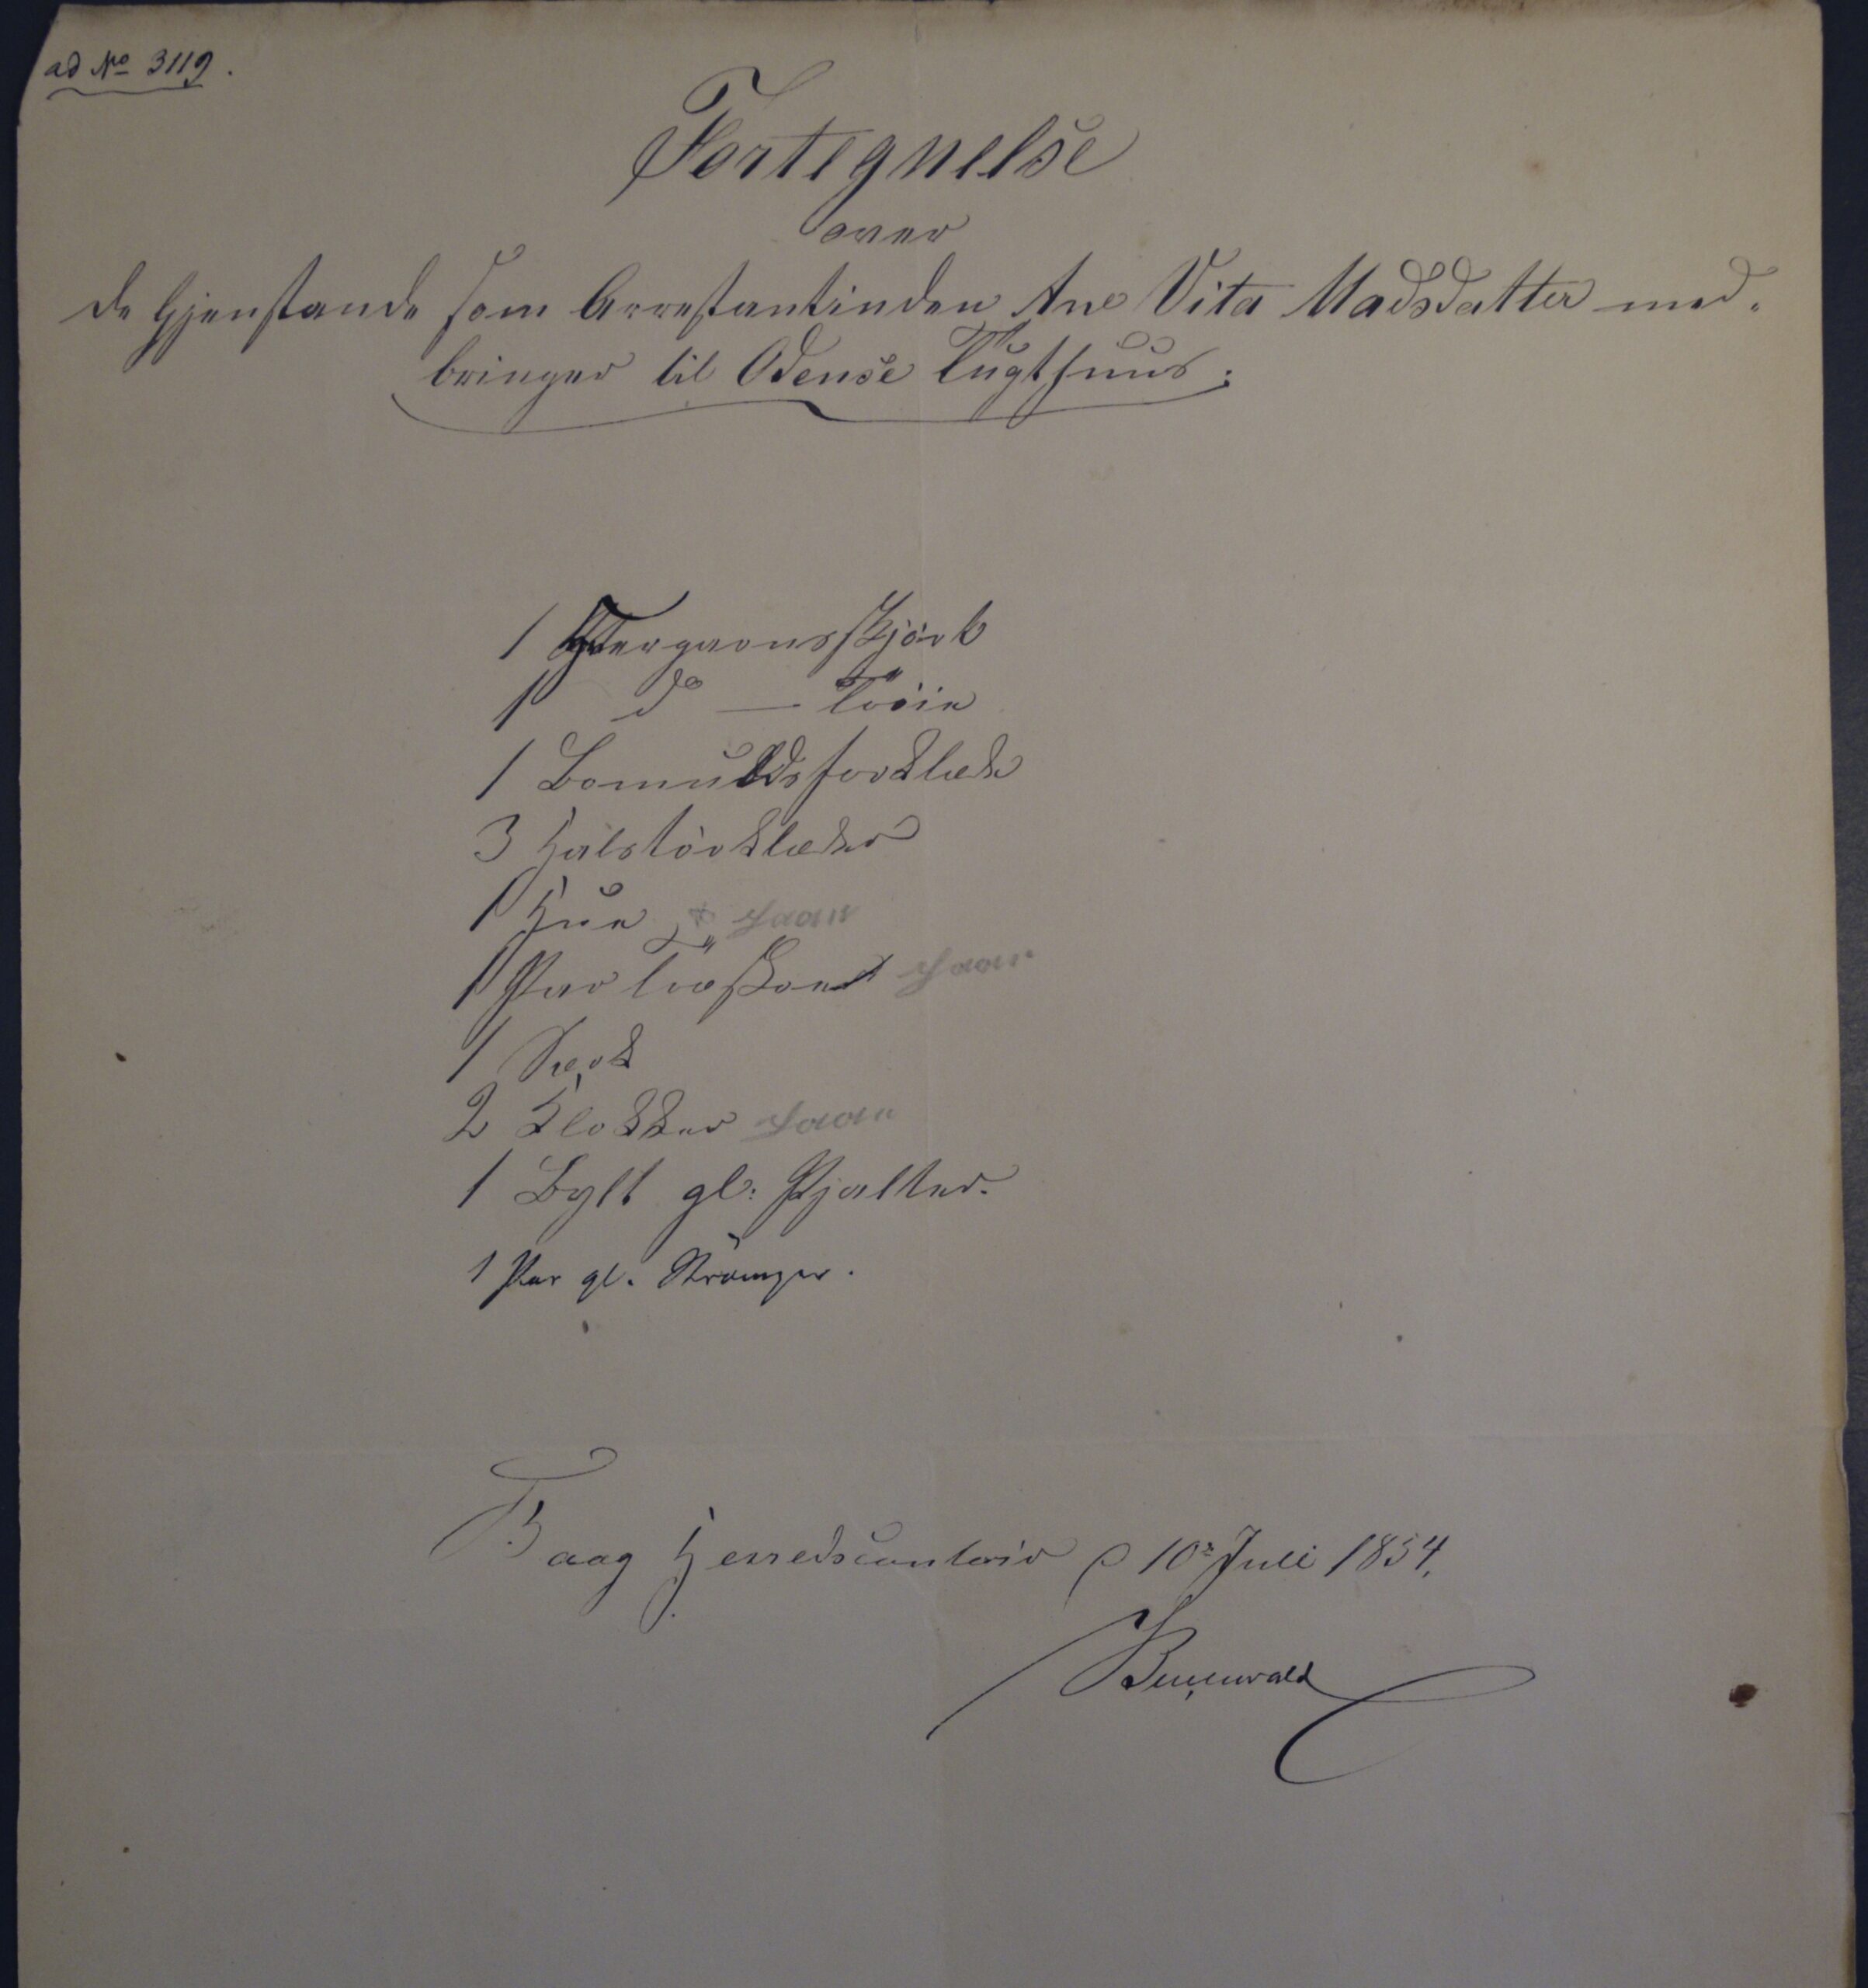 ad No 3119.
Fortegnelse
over
de Gjenstande som Arrestantinden Ane Vita Madsdatter med-
bringer til Odense Tugthuus:
1 Hvergarnsskjört
1 do — Tröie
1 Bomuldsforklæde
3 Halstörklæder
1 Hue
1 Par Træskoe
1 Særk
2 Klokker
1 Bylt gl: Pjalter.
1 Par gl. Strömper.
Baag Herredscontoir d 10de Juli 1854.